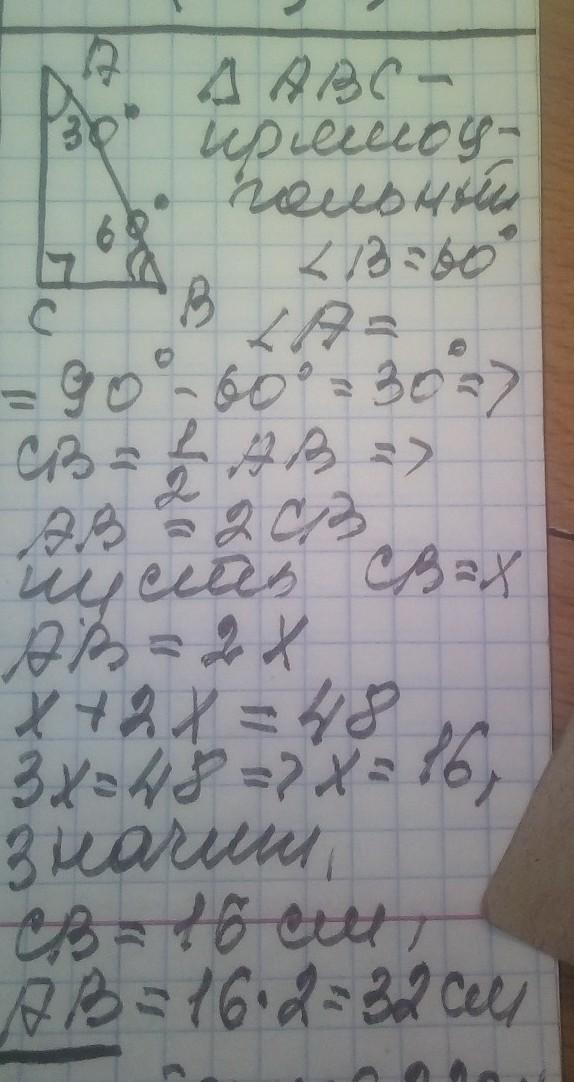 A
30°
60°
C
B
Δ ABC –
прямоу-
гольный
∠B = 60°
∠A =
= 90° - 60° = 30° =>
CB = 1/2 AB =>
AB = 2 CB
пусть CB = x
AB = 2x
x + 2x = 48
3x = 48 => x = 16,
значит,
CB = 16 см,
AB = 16 · 2 = 32 см